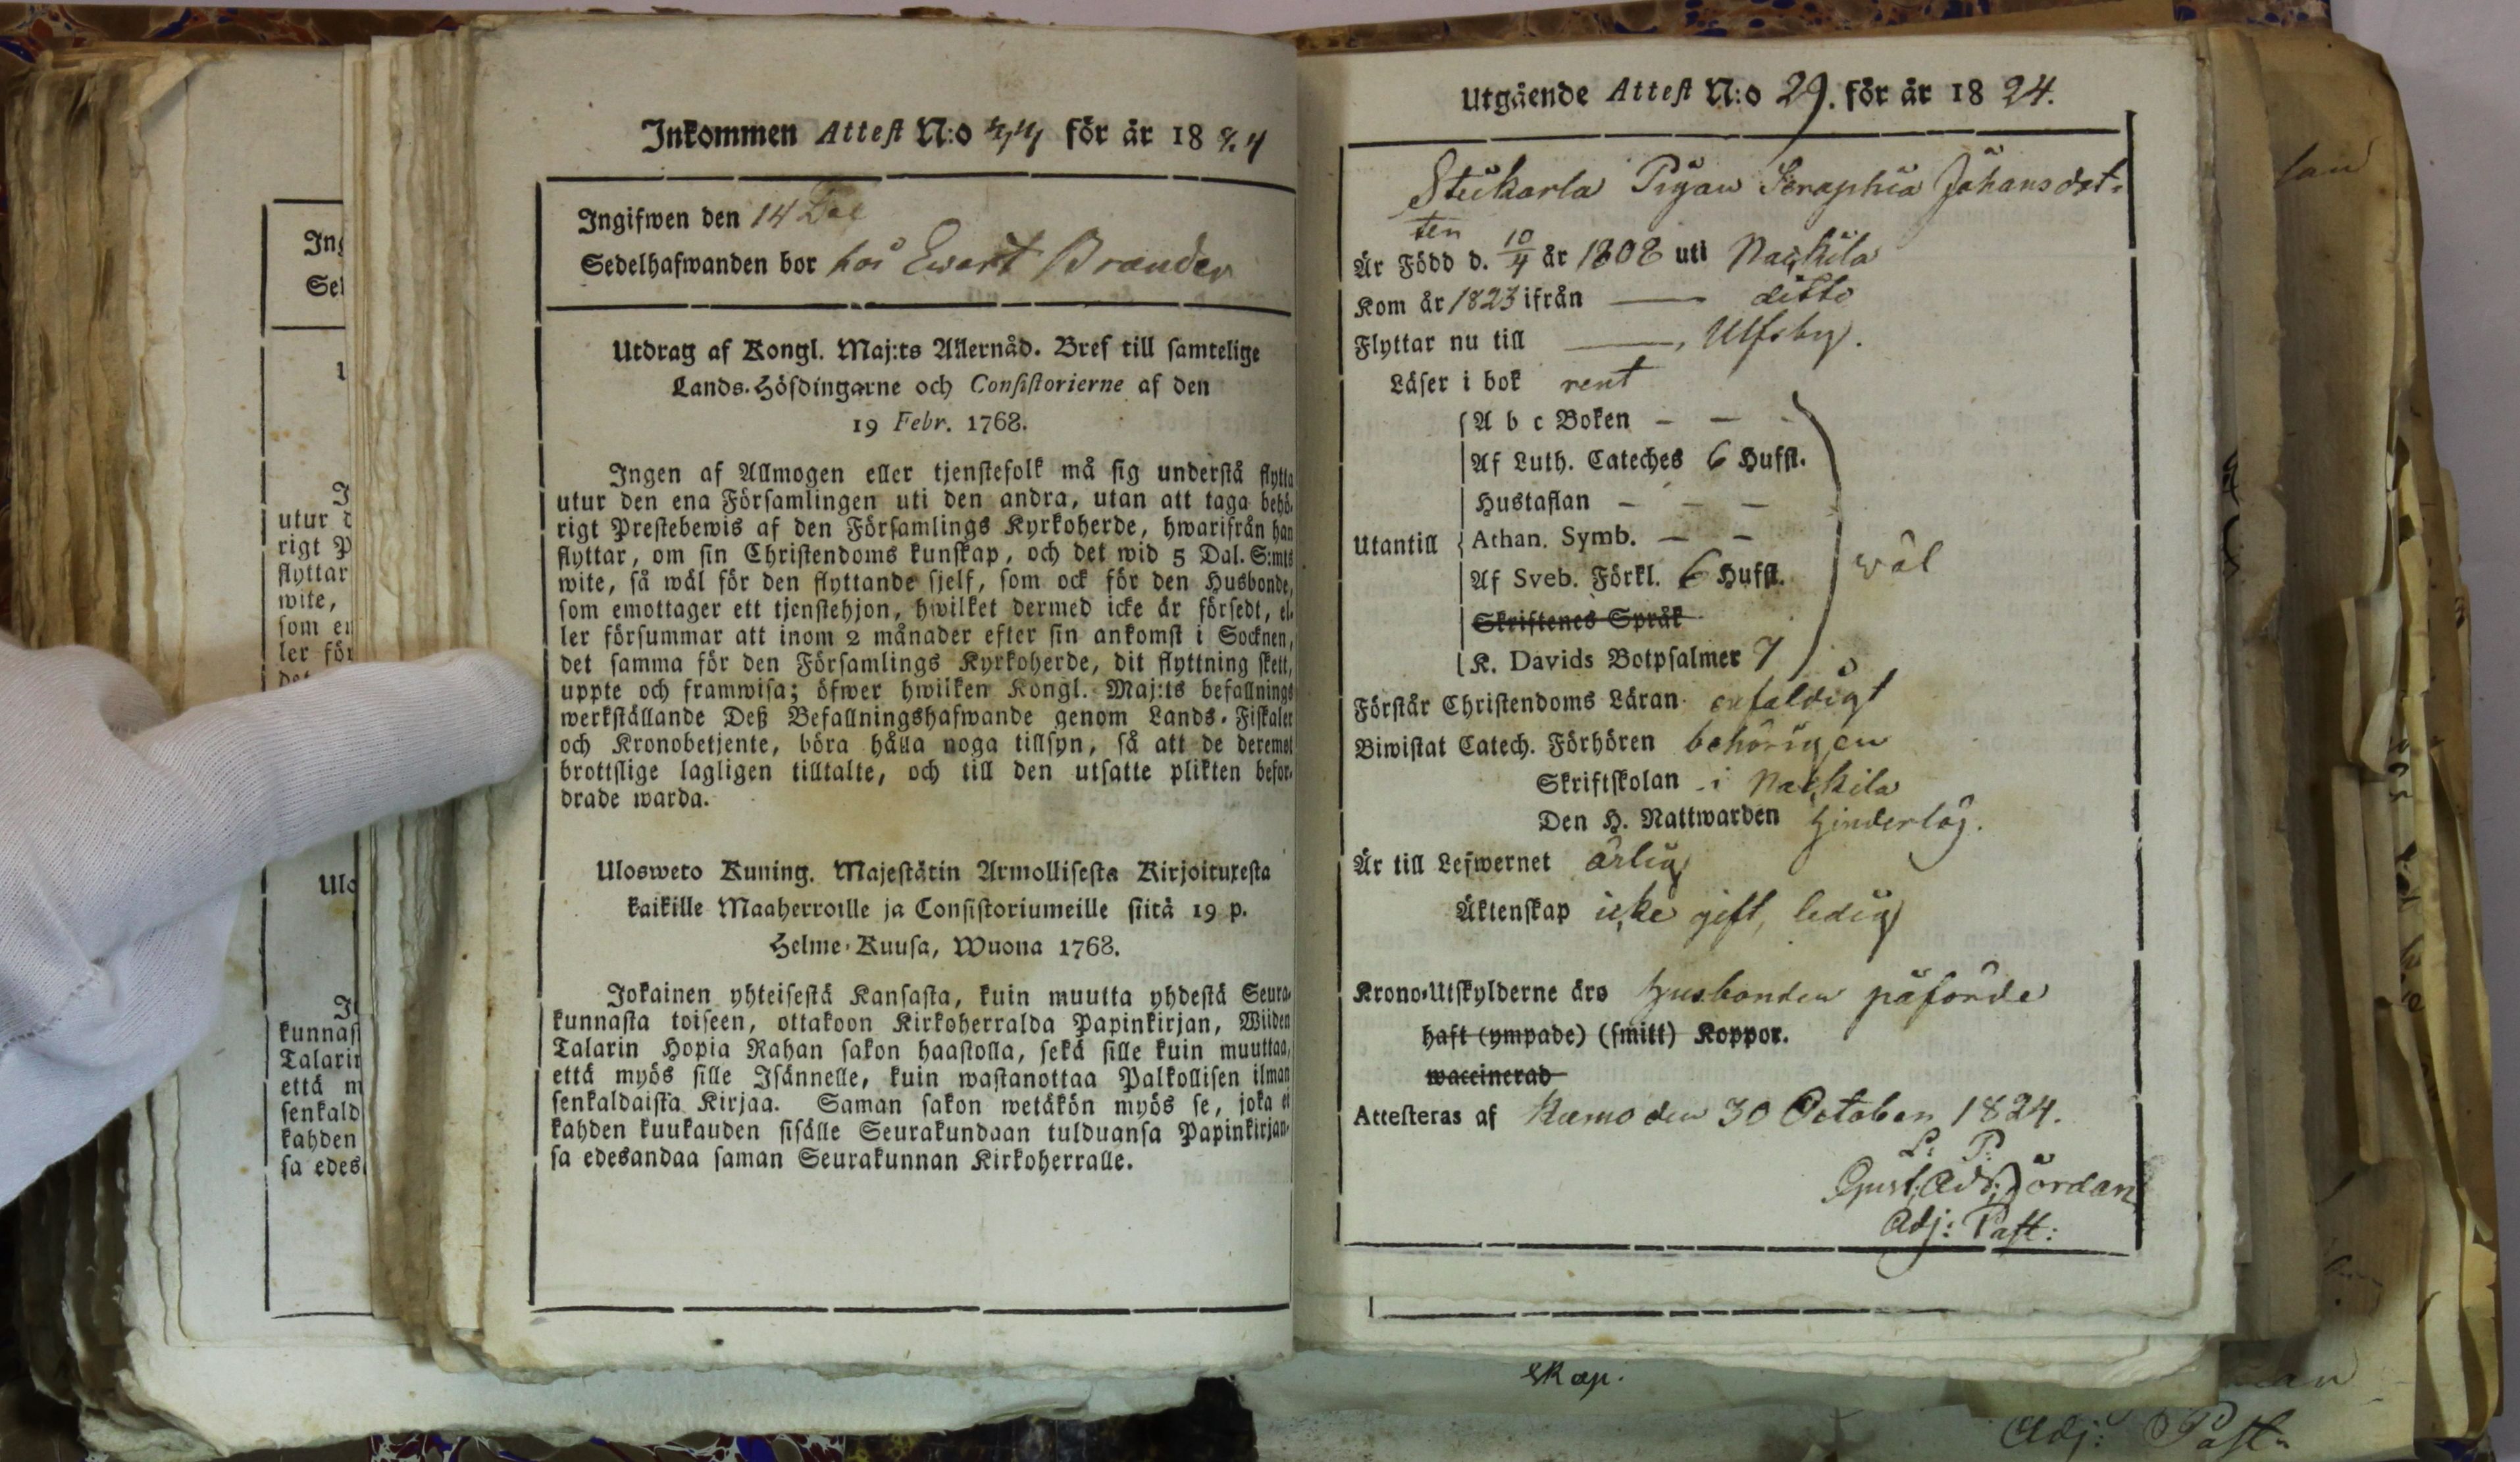 Inkommen Attest N:o 44 för år 1824
Ingifwen den 14 Dec
Sedelhafwanden bor hos Ewert Brander
Utdrag af Kongl. Maj:ts Allernåd. Bref till samtelige
Lands-Höfdingarne och Consistorierne af den
19 Febr. 1768.
Ingen af Allmogen eller tjenstefolk må sig understå flytta
utur den ena Församlingen uti den andra, utan att taga behö-
rigt Prestebewis af den Församlings Kyrkoherde, hwarifrån han
flyttar, om sin Christendoms kunskap, och det wid 5 Dal. S:mts
wite, så wäl för den flyttande sjelf, som ock för den Husbonde,
som emottager ett tjenstehjon, hwilket dermed icke är försedt, el-
ler försummar att inom 2 månader efter sin ankomst i Socknen,
det samma för den Församlings Kyrkoherde, dit flyttning skett,
uppte och framwisa; öfwer hwilken Kongl. Maj:ts befallnings
werkställande Deß Befallningshafwande genom Lands-Fiskaler
och Kronobetjente, böra hålla noga tillsyn, så att de deremot
brottslige lagligen tilltalte, och till den utsatte plikten befor-
drade warda.
Ulosweto Kuning. Majestätin Armollisesta Kirjoituxesta
kaikille Maaherroille ja Consistoriumeille siitä 19 p.
Helme-Kuusa, Wuona 1768.
Jokainen yhteisestä Kansasta, kuin muutta yhdestä Seura-
kunnasta toiseen, ottakoon Kirkoherralda Papinkirjan, Wiiden
Talarin Hopia Rahan sakon haastolla, sekä sille kuin muuttaa,
että myös sille Isännelle, kuin wastanottaa Palkollisen ilman
senkaldaista Kirjaa. Saman sakon wetäkön myös se, joka ei
kahden kuukauden sisälle Seurakundaan tulduansa Papinkirjan-
sa edesandaa saman Seurakunnan Kirkoherralle.
Utgående Attest N:o 29. för år 1824.
Stukarla Pigan Seraphia Johansdot-
ter
Är Född d. 10/4 år 1808 uti Nackila
Kom år 1823 ifrån — ditto
Flyttar nu till —, Ulfsby.
Läser i bok rent
A b c Boken - -
Af Luth. Cateches 6 Hufst.
Hustaflan - - -
Utantill Athan. Symb. - - wäl
Af Sveb. Förkl. 6 Hufst.
Skriftenes Språk
K. Davids Botpsalmer 7
Förstår Christendoms Läran enfaldigt
Biwistat Catech. Förhören behörigen
Skriftskolan i Nackila
Den H. Nattwarden hinderlös.
Är till Lefwernet ärlig
Äktenskap icke gift, ledig
Krono-Utskylderne äro husbonden påförde
haft (ympade) (smitt) Koppor.
waccinerad
Attesteras af Kumo den 30 October 1824.
L. P.
Gust. Ad. Jordan
Adj: Past:
skap.
Adj: Past.